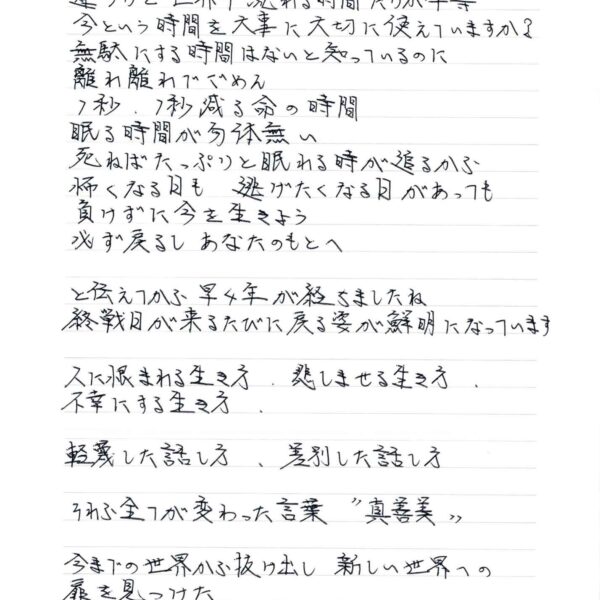 世界中 流れる時間だけが平等
今という時間を大事に大切に使えていますか?
無駄にする時間はないと知っているのに
離れ離れでごめん
1秒、1秒減る命の時間
眠る時間が勿体無い
死ねばたっぷりと眠れる時が追るから
怖くなる日も 逃げたくなる日があっても
負けずに今を生きよう
必ず戻るし あなたのもとへ
と伝えてから早4年が経ちましたね
終戦日が来るたびに戻る姿が鮮明になっています
人に恨まれる生き方、悲しませる生き方、
不幸にする生き方、
軽蔑した話し方、差別した話し方
それら全てが変わった言葉 〝真善美〟
今までの世界から抜け出し 新しい世界への
扉を見つけた